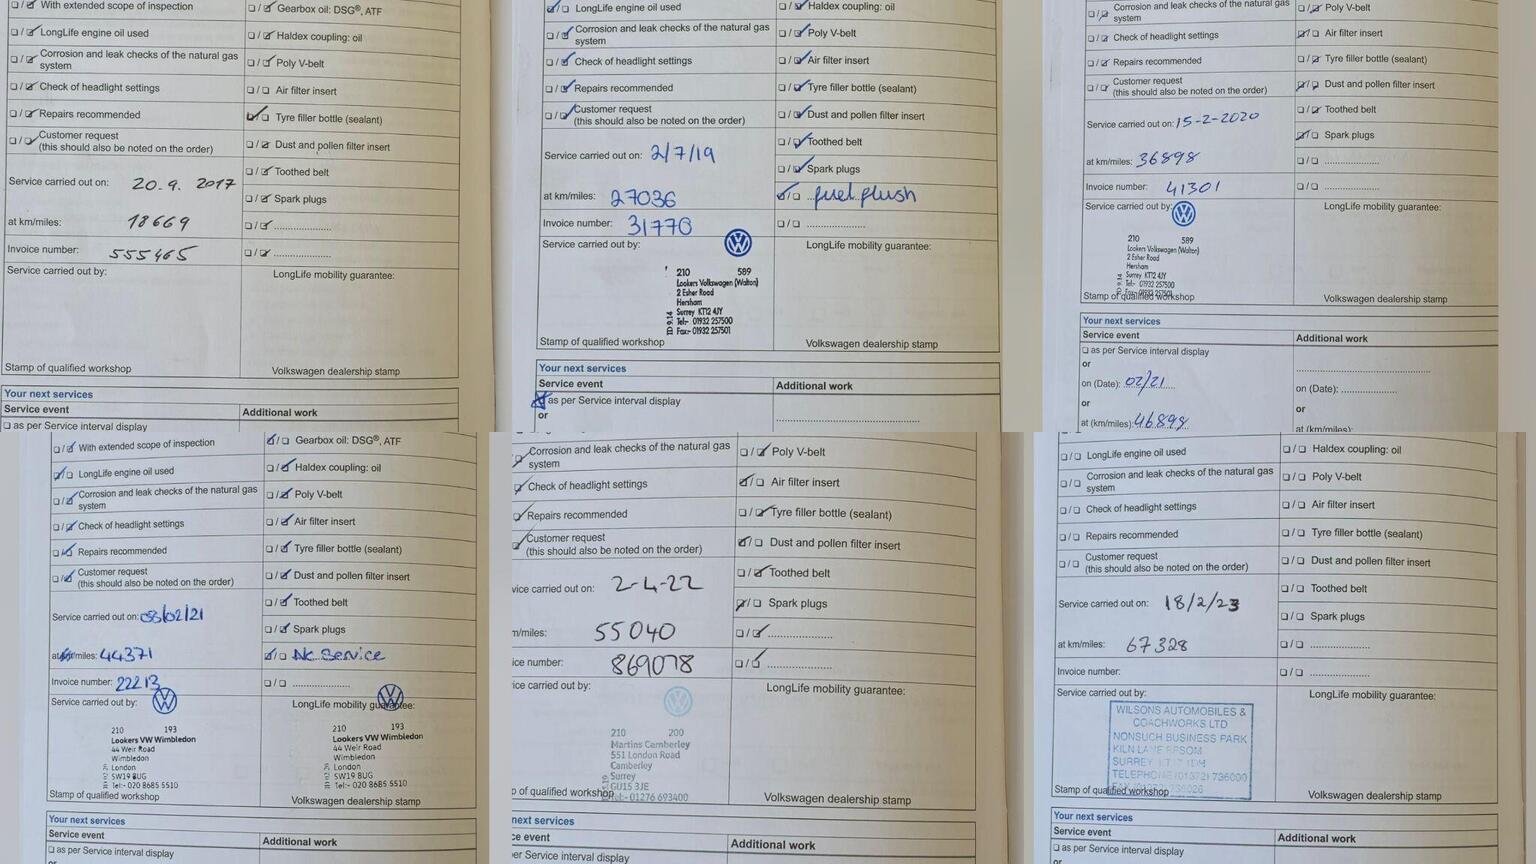 With extended scope of inspection
LongLife engine oil used
Corrosion and leak checks of the natural gas
system
Check of headlight settings
Repairs recommended
Customer request
(this should also be noted on the order)
Service carried out on: 20.9. 2017
at km/miles: 18669
Invoice number: 555465
Service carried out by:
Stamp of qualified workshop
Gearbox oil: DSG®, ATF
Haldex coupling: oil
Poly V-belt
Air filter insert
Tyre filler bottle (sealant)
Dust and pollen filter insert
Toothed belt
Spark plugs
....................
....................
LongLife mobility guarantee:
Volkswagen dealership stamp
Your next services
Service event
Additional work
as per Service interval display
LongLife engine oil used
Corrosion and leak checks of the natural gas
system
Check of headlight settings
Repairs recommended
Customer request
(this should also be noted on the order)
Service carried out on: 2/7/19
at km/miles: 27036
Invoice number: 31770
Service carried out by:
210 589
Lookers Volkswagen (Walton)
2 Esher Road
Hersham
Surrey KT12 4JY
Tel:- 01932 257500
Fax:- 01932 257501
ID 9.14
Stamp of qualified workshop
Haldex coupling: oil
Poly V-belt
Air filter insert
Tyre filler bottle (sealant)
Dust and pollen filter insert
Toothed belt
Spark plugs
fuel flush
....................
LongLife mobility guarantee:
Volkswagen dealership stamp
Your next services
Service event
Additional work
as per Service interval display
or
Corrosion and leak checks of the natural gas
system
Check of headlight settings
Repairs recommended
Customer request
(this should also be noted on the order)
Service carried out on: 15-2-2020
at km/miles: 36898
Invoice number: 41301
Service carried out by:
210 589
Lookers Volkswagen (Walton)
2 Esher Road
Hersham
Surrey KT12 4JY
Tel:- 01932 257500
Stamp of qualified workshop
Poly V-belt
Air filter insert
Tyre filler bottle (sealant)
Dust and pollen filter insert
Toothed belt
Spark plugs
....................
....................
LongLife mobility guarantee:
Volkswagen dealership stamp
Your next services
Service event
Additional work
as per Service interval display
or
on (Date): 02/21
or
at (km/miles): 46898
on (Date):
or
at (km/miles):
With extended scope of inspection
LongLife engine oil used
Corrosion and leak checks of the natural gas
system
Check of headlight settings
Repairs recommended
Customer request
(this should also be noted on the order)
Service carried out on: 03/02/21
at km/miles: 44371
Invoice number: 22213
Service carried out by:
210 193
Lookers VW Wimbledon
44 Weir Road
Wimbledon
London
SW19 8UG
Tel:- 020 8685 5510
Stamp of qualified workshop
Gearbox oil: DSG®, ATF
Haldex coupling: oil
Poly V-belt
Air filter insert
Tyre filler bottle (sealant)
Dust and pollen filter insert
Toothed belt
Spark plugs
Service
....................
LongLife mobility guarantee:
210 193
Lookers VW Wimbledon
44 Weir Road
Wimbledon
London
SW19 8UG
Tel:- 020 8685 5510
Volkswagen dealership stamp
Your next services
Service event
Additional work
as per Service interval display
or
Corrosion and leak checks of the natural gas
system
Check of headlight settings
Repairs recommended
Customer request
(this should also be noted on the order)
vice carried out on: 2-4-22
m/miles: 55040
ice number: 869078
ice carried out by:
210 200
Martins Camberley
551 London Road
Camberley
Surrey
GU15 3JE
Tel:- 01276 693400
p of qualified workshop
Poly V-belt
Air filter insert
Tyre filler bottle (sealant)
Dust and pollen filter insert
Toothed belt
Spark plugs
....................
....................
LongLife mobility guarantee:
Volkswagen dealership stamp
next services
ce event
Additional work
er Service interval display
LongLife engine oil used
Corrosion and leak checks of the natural gas
system
Check of headlight settings
Repairs recommended
Customer request
(this should also be noted on the order)
Service carried out on: 18/2/23
at km/miles: 67328
Invoice number:
Service carried out by:
WILSONS AUTOMOBILES &
COACHWORKS LTD
NONSUCH BUSINESS PARK
KILN LANE EPSOM
SURREY KT17 1DH
TELEPHONE (01372) 736000
Stamp of qualified workshop
Haldex coupling: oil
Poly V-belt
Air filter insert
Tyre filler bottle (sealant)
Dust and pollen filter insert
Toothed belt
Spark plugs
....................
....................
LongLife mobility guarantee:
Volkswagen dealership stamp
Your next services
Service event
Additional work
as per Service interval display